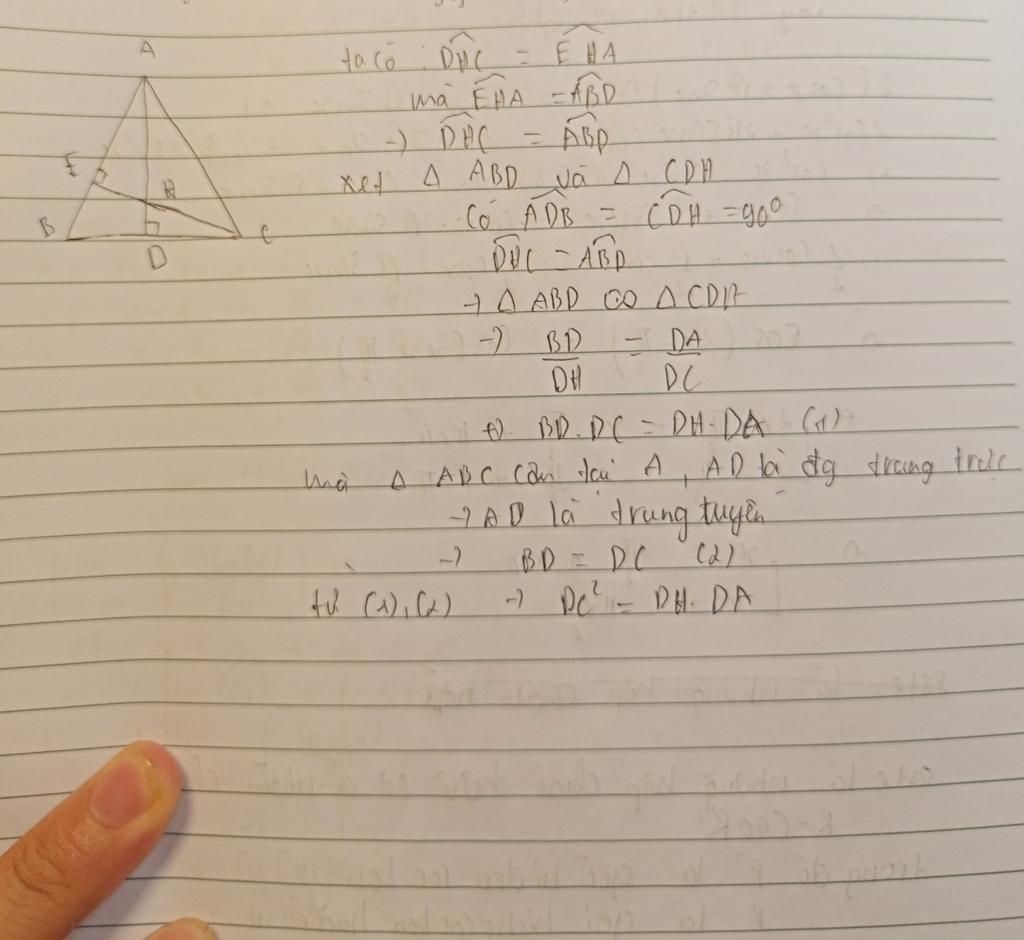 A
E
H
B
D
C
ta có : DHC = EHA
mà EHA = ABD
→ DHC = ABD
xet Δ ABD và Δ CDH
Có ADB = CDH = 90°
DHC = ABD
→ Δ ABD ∽ Δ CDH
→ BD/DH = DA/DC
BD.DC = DH.DA (1)
mà Δ ABC cân tại A, AD là đg trung trực
→ AD là trung tuyên
→ BD = DC (2)
từ (1),(2) → DC² = DH.DA